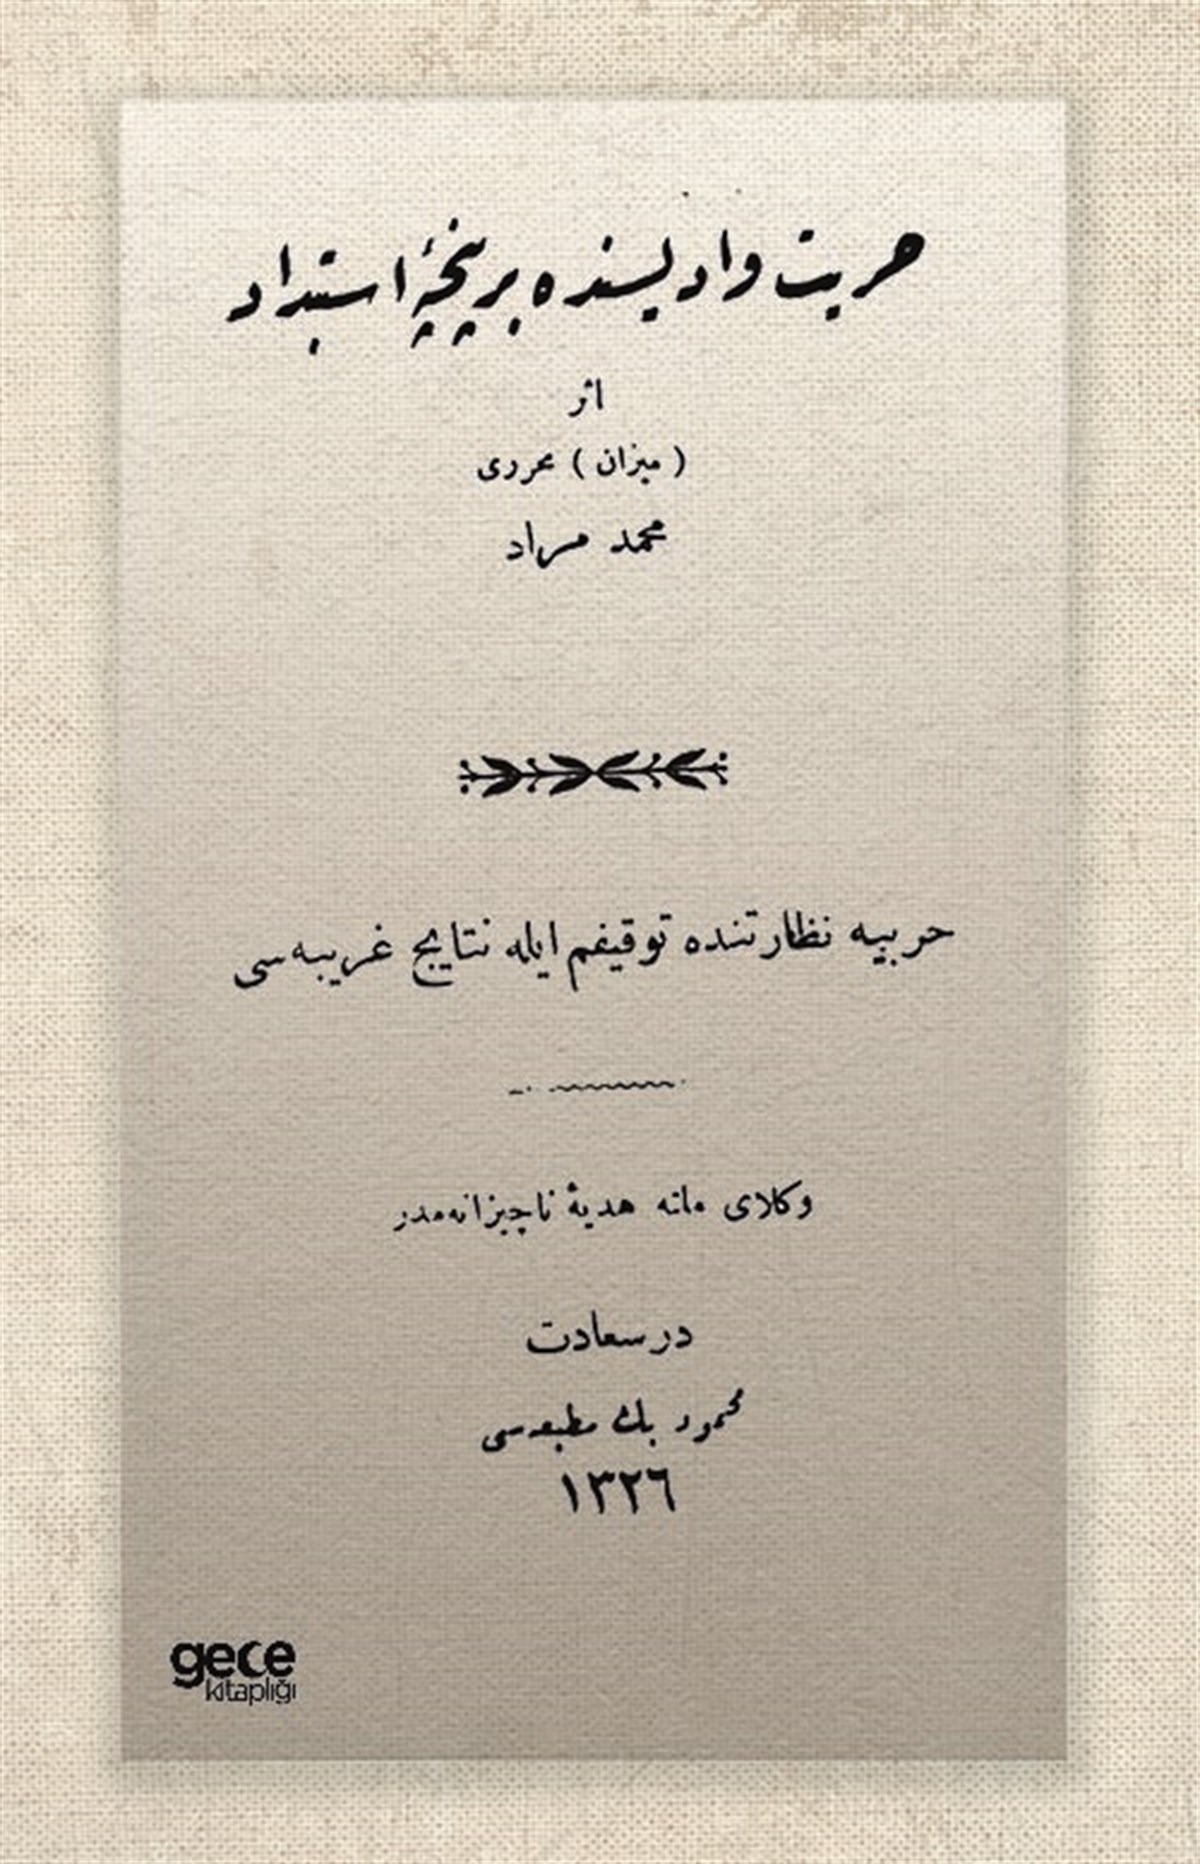 حریت وادیسنده بر پنچۀ استبداد
اثر
( میزان ) محرری
محمد مراد
حربیه نظارتنده توقیفم ایله نتایج غریبه‌سی
وکلای ملته هدیۀ ناچیزانه‌مدر
درسعادت
محمود بك مطبعه‌سی
١٣٢٦
gece
kitaplığı